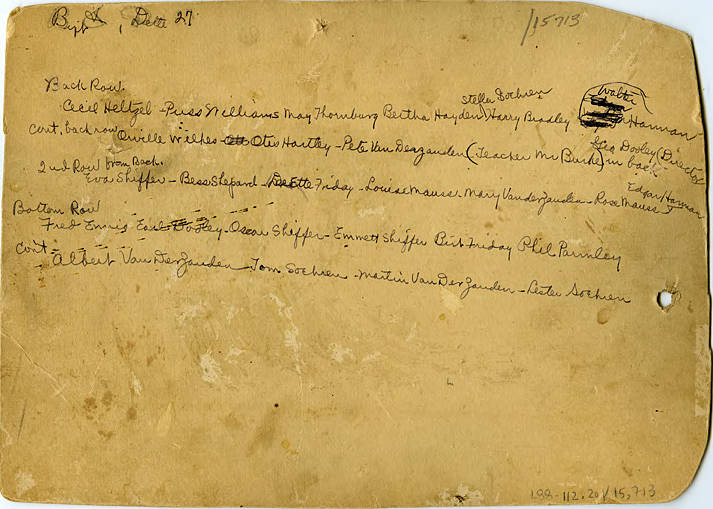 Dette 27
/15713
Back Row.
Stella Sochren
Walter
Cecil Heltzel - Puss Williams May Thornburg Bertha Hayden Harry Bradley Hannan
cont. back row Orville Wilkes - Otis Hartley - Pete Van Derzanden (Teacher Mr Burke) in back
Geo Dooley (Director)
2nd Row from Back.
Eva Shiffer - Bess Shepard - Dette Friday - Louise Mauss - Mary Vanderzanden - Rose Mauss
Edgar Hannan
Bottom Row
Fred Ennis Earl Dooley - Oscar Shiffer - Emmett Shiffer Bert Friday Phil Parmley
cont -
Albert Van Derzanden - Tom Sochren - Martin Van Der Zanden - Lester Sochren
188-112.20/15,713